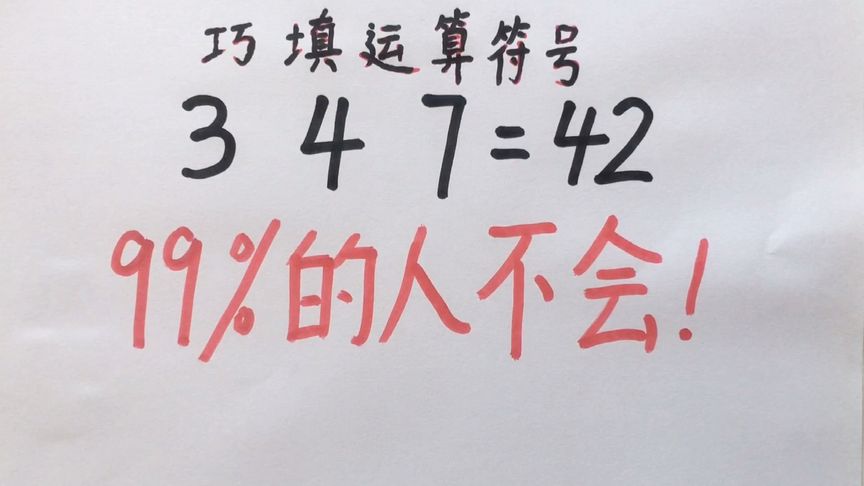 巧填运算符号
3 4 7=42
99%的人不会!